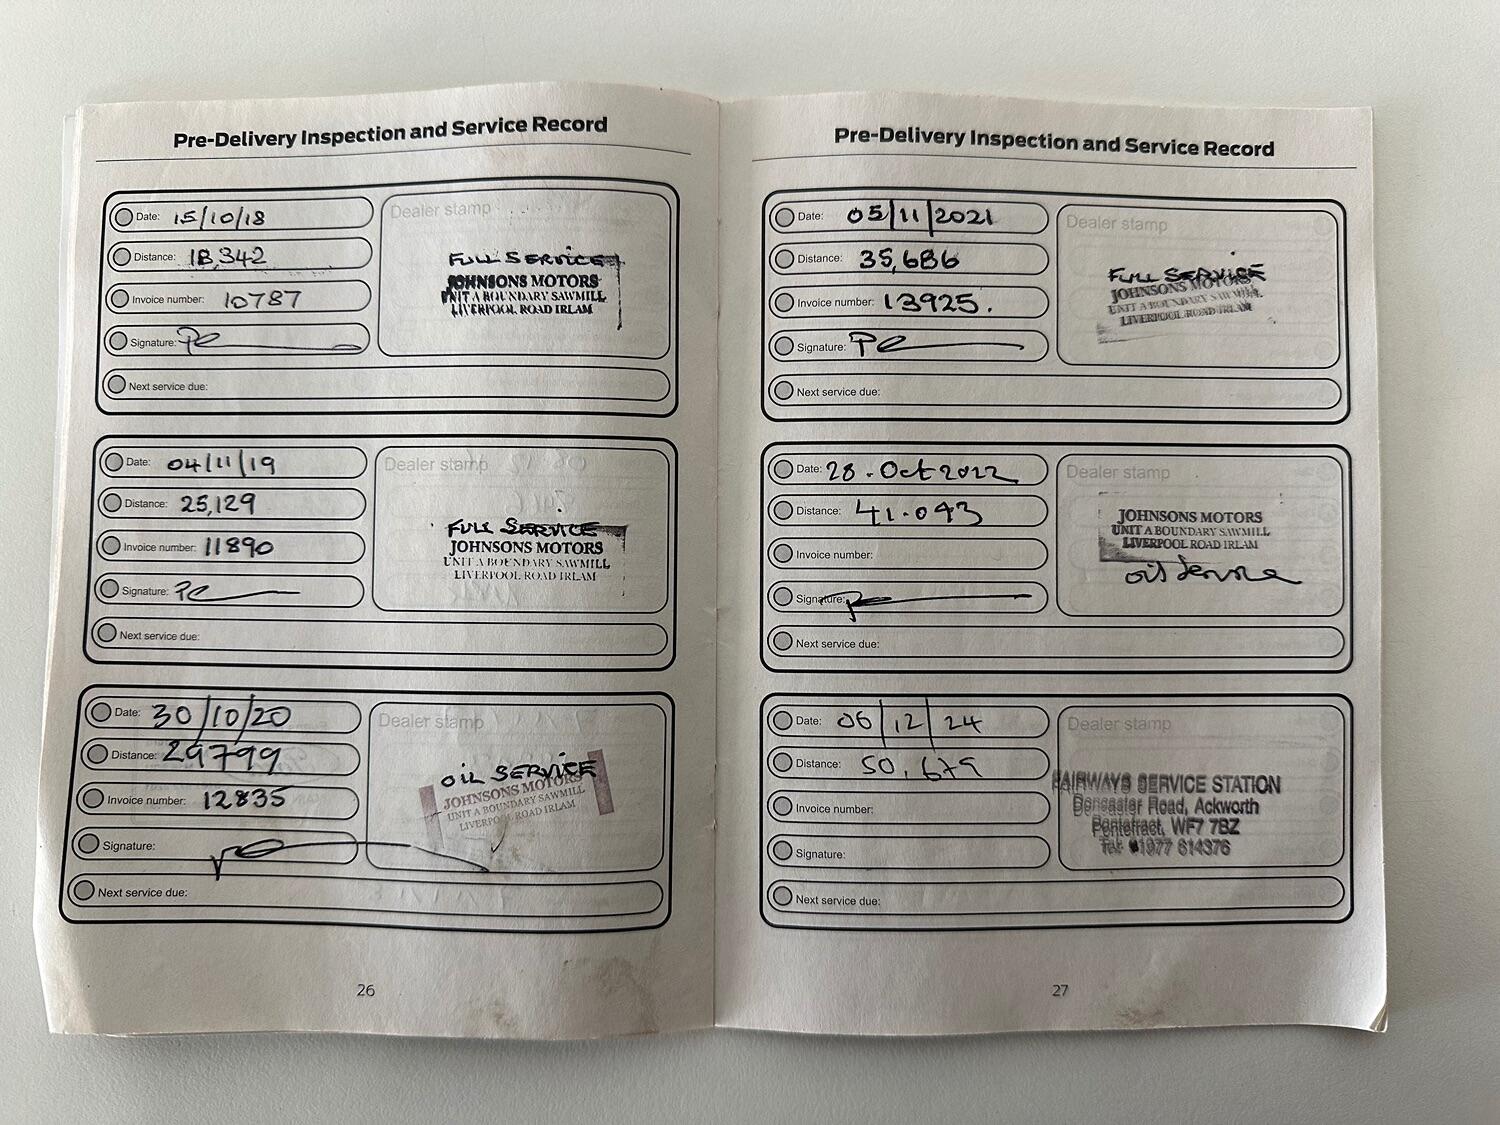 Pre-Delivery Inspection and Service Record
Date: 15/10/18
Distance: 18,342
Invoice number: 10787
Signature:
Next service due:
Dealer stamp
FULL SERVICE
JOHNSONS MOTORS
UNIT A BOUNDARY SAWMILL
LIVERPOOL ROAD IRLAM
Date: 04/11/19
Distance: 25,129
Invoice number: 11890
Signature:
Next service due:
Dealer stamp
FULL SERVICE
JOHNSONS MOTORS
UNIT A BOUNDARY SAWMILL
LIVERPOOL ROAD IRLAM
Date: 30/10/20
Distance: 29799
Invoice number: 12835
Signature:
Next service due:
Dealer stamp
OIL SERVICE
JOHNSONS MOTORS
UNIT A BOUNDARY SAWMILL
LIVERPOOL ROAD IRLAM
26
Pre-Delivery Inspection and Service Record
Date: 05/11/2021
Distance: 35,686
Invoice number: 13925.
Signature:
Next service due:
Dealer stamp
FULL SERVICE
JOHNSONS MOTORS
UNIT A BOUNDARY SAWMILL
LIVERPOOL ROAD IRLAM
Date: 28.Oct 2022
Distance: 41.093
Invoice number:
Signature:
Next service due:
Dealer stamp
JOHNSONS MOTORS
UNIT A BOUNDARY SAWMILL
LIVERPOOL ROAD IRLAM
oil Service
Date: 06/12/24
Distance: 50,679
Invoice number:
Signature:
Next service due:
Dealer stamp
FAIRWAYS SERVICE STATION
Doncaster Road, Ackworth
Pontefract, WF7 7BZ
Tel: 01977 614376
27